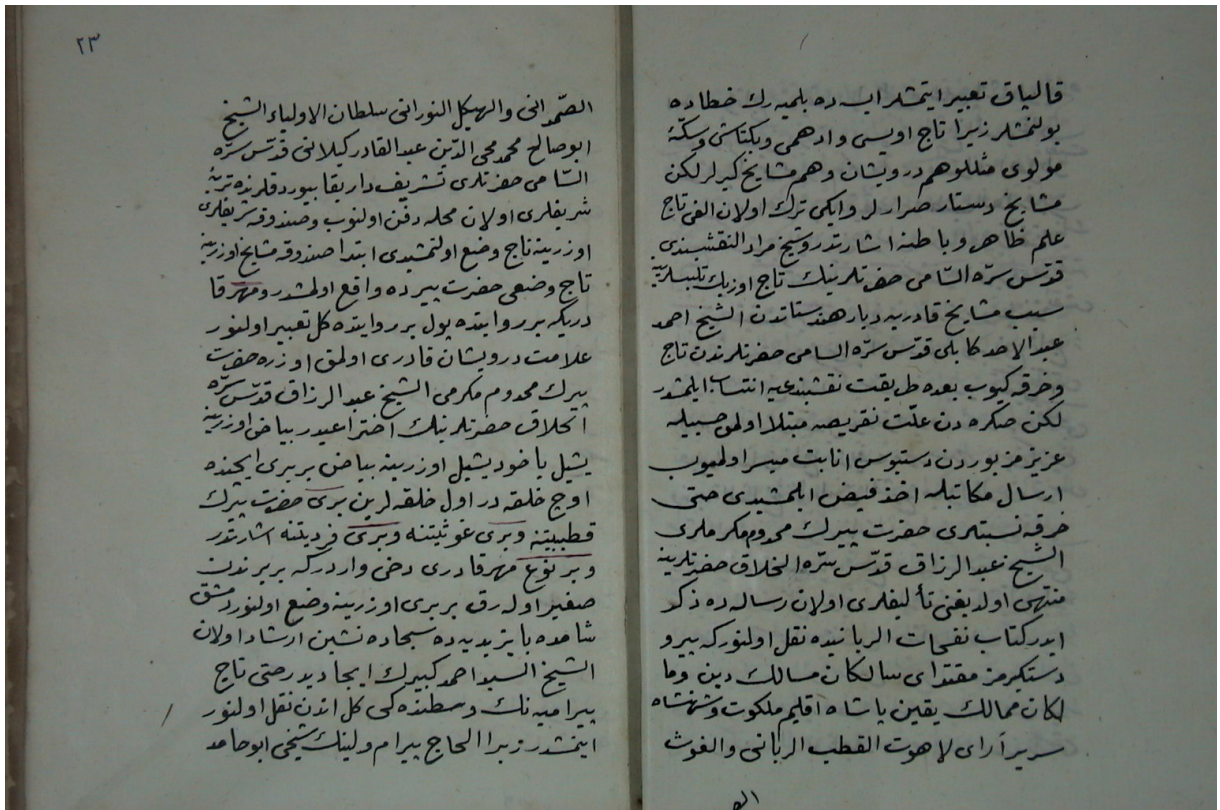 قالپاق تعبير ايتمشلر ايسه ده بلميه رك خطاده
بولنمشلر زيرا تاج اويسى وادهمى وبكتاشى وسكّۀ
مولوى مثللو هم درويشان وهم مشايخ كيرلر لكن
مشايخ دستار صرارلر وايكى ترك اولان الفى تاج
علم ظاهر وباطنه اشارتدر وشيخ مراد النقشبندى
قدّس سرّه السّامى حضرتلرينك تاج اوزبك تلبسلرينه
سبب مشايخ قادريه ديار هندستاندن الشيخ احمد
عبد الاحد كابلى قدّس سرّه السامى حضرتلرندن تاج
وخرقه كيوب بعده طريقت نقشبنديه انتساب ايلمشدر
لكن صكره دن علّت نقريصه مبتلا اولمق حسبيله
عزيز مزبوردن دستبوس انابت ميسر اولميوب
ارسال مكاتبله اخذ فيض ايلمشيدى حتى
خرقه نسبتلرى حضرت پيرك مخدوم مكرملرى
الشيخ عبد الرزاق قدّس سرّه الخلاق حضرتلرينه
منتهى اولديغنى تأليفلرى اولان رساله ده ذكر
ايدر كتاب نفحات الربانيده نقل اولنور كه پير و
دستكيرمز مقتداى سالكان مسالك دين وما
لكان ممالك يقين پاشاه اقليم ملكوت وشهنشاه
سرير آراى لاهوت القطب الربانى والغوث
الص
٢٣
الصّمدانى والهيكل النورانى سلطان الاولياء الشيخ
ابو صالح محمد محى الدّين عبد القادر كيلانى قدّس سرّه
السّامى حضرتلرى تشريف داربقا بيوردقلرنده تربۀ
شريفلرى اولان محله دفن اولنوب وصندوقۀ شريفلرى
اوزرينه تاج وضع اولنمشيدى ابتدا صندوقۀ مشايخ اوزرينه
تاج وضعى حضرت پيرده واقع اولمشدر ومهر قا
دريكه بر روايتده پول بر روايتده كل تعبير اولنور
علامت درويشان قادرى اولمق اوزره حضرت
پيرك مخدوم مكرمى الشيخ عبد الرزاق قدّس سرّه
الخلاق حضرتلرينك اختراعيدر بياض اوزرينه
يشيل ياخود يشيل اوزرينه بياض بربرى ايچنده
اوچ حلقه در اول حلقه لرين برى حضرت پيرك
قطبيتنه وبرى غوثيتنه وبرى فرديتنه اشارتدر
وبر نوع مهر قادرى دخى واردركه بربرندن
صغير اوله رق بربرى اوزرينه وضع اولنور دمشق
شامده بايزيديه ده سجاده نشين ارشاد اولان
الشيخ السيد احمد كبيرك ايجاديدر حتى تاج
پيراميه نك وسطنده كى كل اندن نقل اولنور
ايتمشدر زيرا الحاج پيرام ولينك شيخى ابو حامد